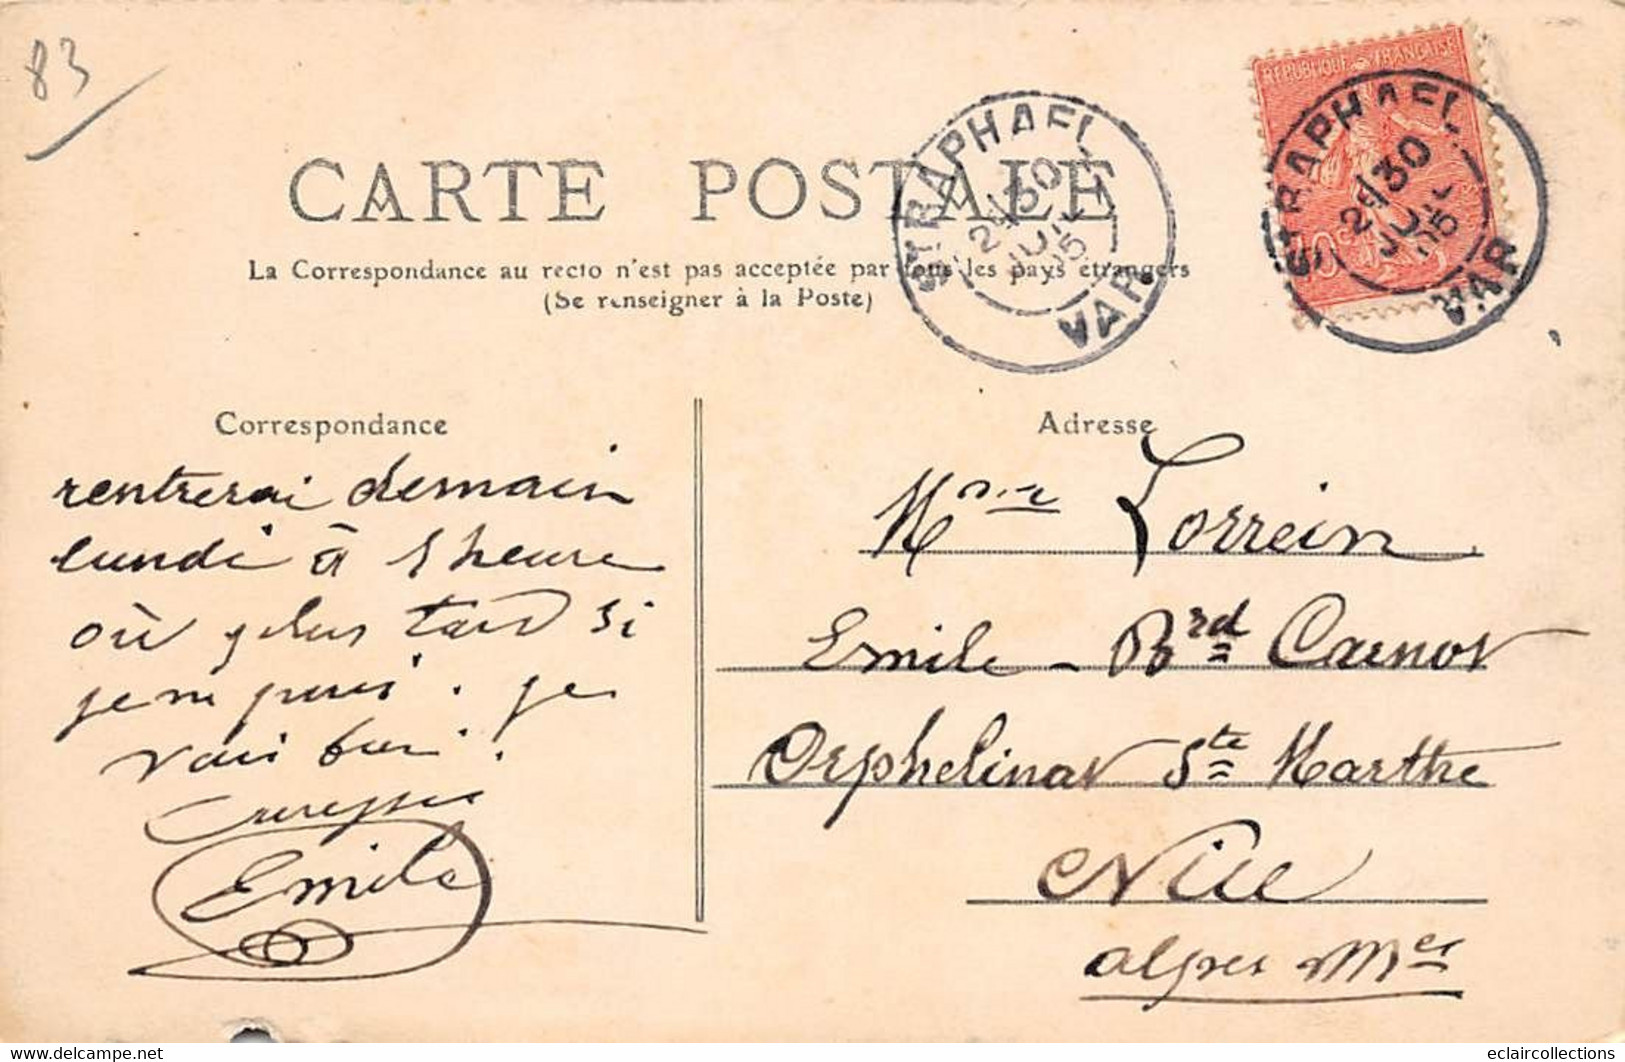 83
CARTE POSTALE
La Correspondance au recto n'est pas acceptée par tous les pays etrangers
(Se renseigner à la Poste)
ST RAPHAEL
30
JUIL
05
VAR
REPUBLIQUE FRANÇAISE
10c
ST RAPHAEL
30
JUIL
05
VAR
Correspondance
rentrerai demain
lundi à 1 heure
où plus tard si
je ne puis. je
vais bien.
Caresses
Emile
Adresse
Mme Lorrein
Emile - Brd Carnot
Orphelinat Ste Marthe
Nice
Alpes Mes
www.delcampe.net
eclaircollections